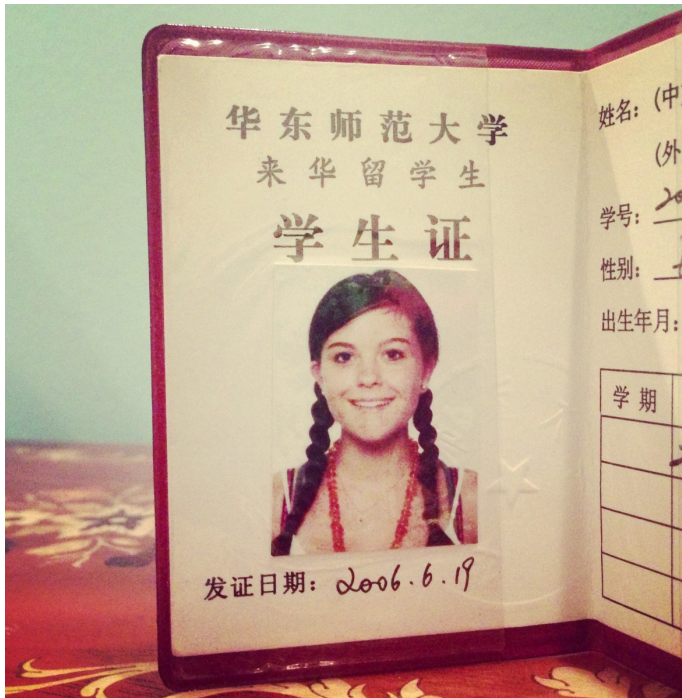 华东师范大学
来华留学生
学生证
发证日期：2006.6.19
姓名：(中
(外
学号：20
性别：
出生年月：
学期